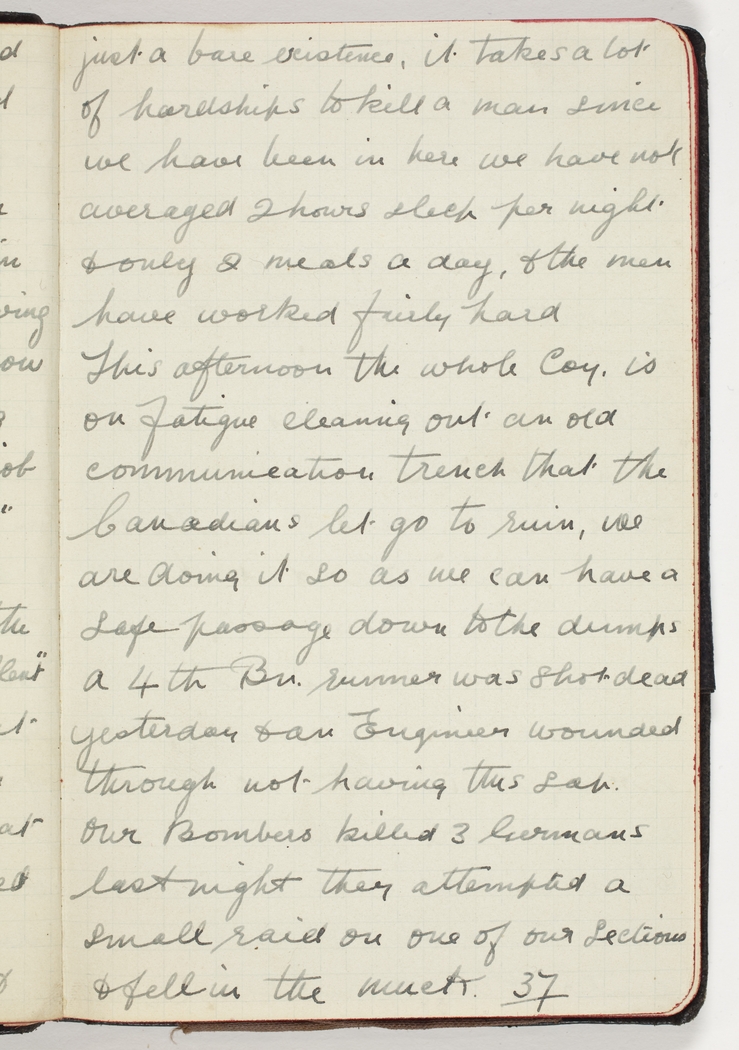 just a bare existence, it takes a lot
of hardships to kill a man since
we have been in here we have not
averaged 2 hours sleep per night
& only 2 meals a day, & the men
have worked fairly hard
This afternoon the whole Coy. is
on fatigue cleaning out an old
communication trench that the
Canadians let go to ruin, we
are doing it so as we can have a
safe passage down to the dumps
a 4th Bn. runner was shot dead
yesterday & an Engineer wounded
through not having this sap.
Our Bombers killed 3 Germans
last night they attempted a
small raid on one of our Sections
& fell in the muck. 37